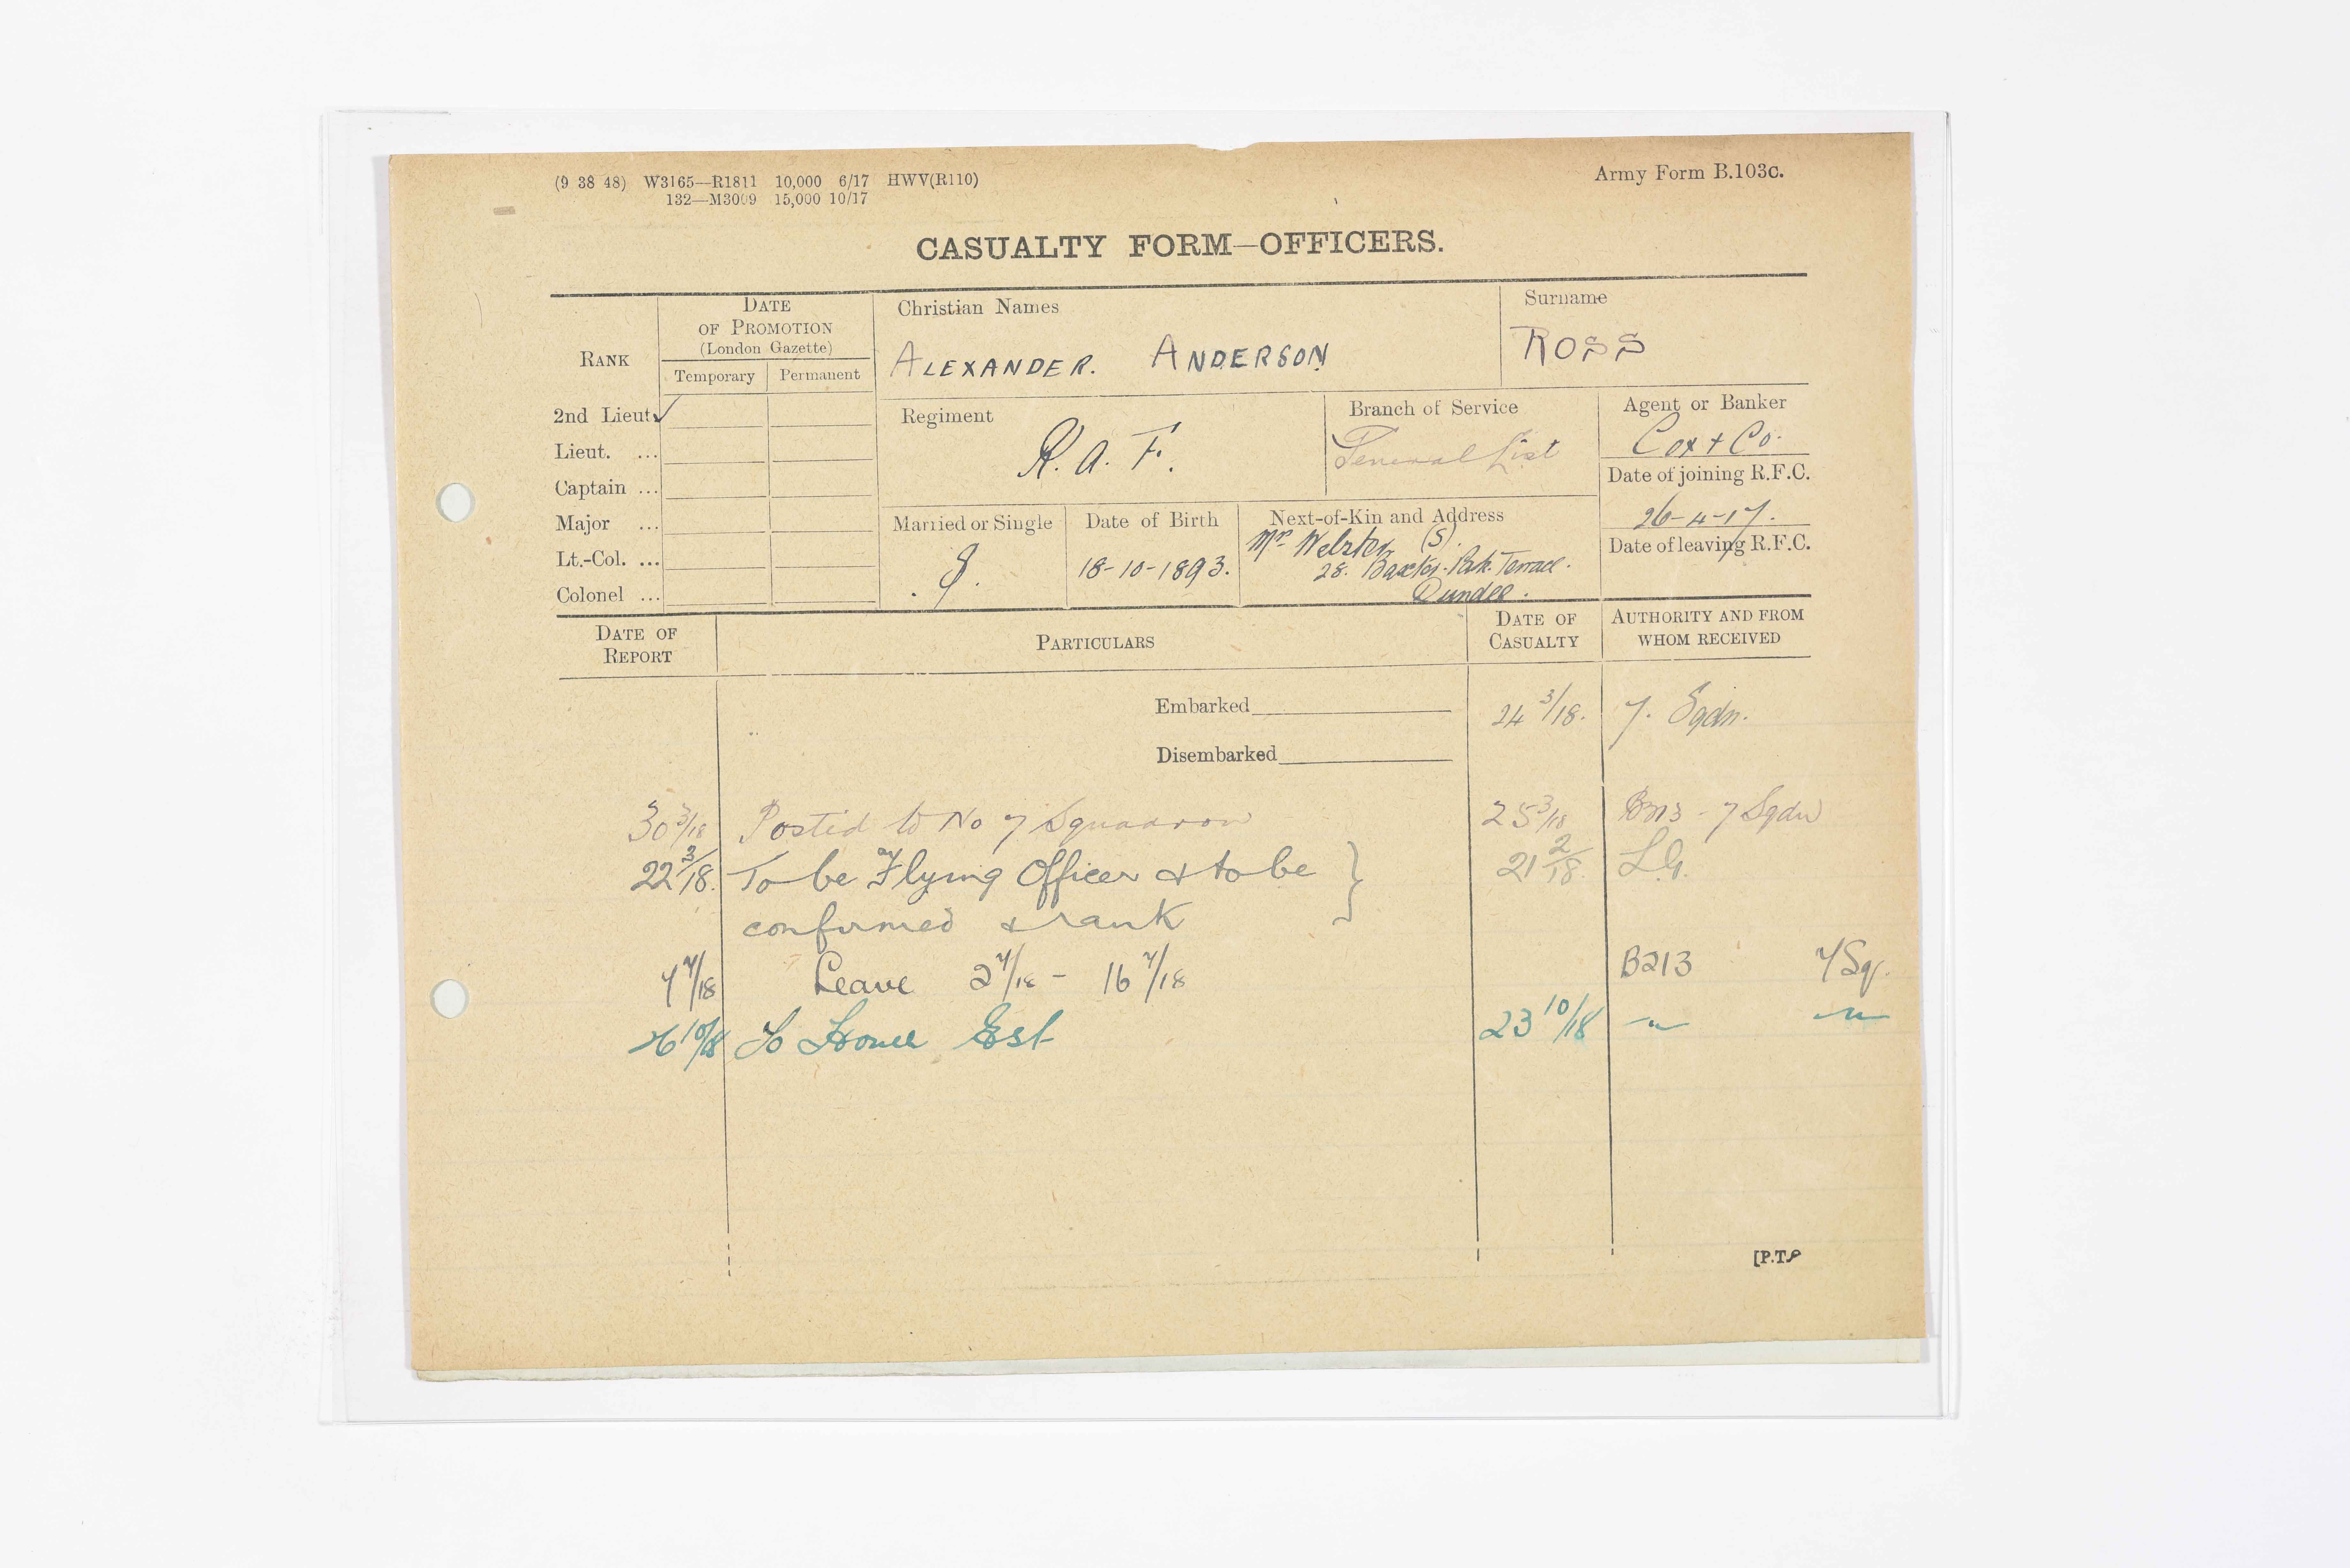 (9 38 48) W3165—R1811 10,000 6/17 HWV(R110)
132—M3009 15,000 10/17
Army Form B.103c.
CASUALTY FORM—OFFICERS.
RANK
DATE OF PROMOTION (London Gazette)
Temporary Permanent
Christian Names
ALEXANDER. ANDERSON
Surname
ROSS
2nd Lieut ✓
Lieut. ...
Captain ...
Major ...
Lt.-Col. ...
Colonel ...
Regiment
R. A. F.
Branch of Service
General List
Agent or Banker
Cox + Co.
Date of joining R.F.C.
26-4-17.
Date of leaving R.F.C.
Married or Single
S.
Date of Birth
18-10-1893.
Next-of-Kin and Address
Webster (S).
28. Baxter Park Terrace.
Dundee.
DATE OF REPORT
PARTICULARS
DATE OF CASUALTY
AUTHORITY AND FROM WHOM RECEIVED
Embarked 24 3/18. 7. Sqdn.
Disembarked
30 3/18 Posted to No 7 Squadron 25 3/18 B213 - 7 Sqdn
22 3/18. To be Flying Officer & to be } 21 2/18. L.G.
confirmed & rank
7/18 Leave 2 7/18 - 16 7/18 B213 7 Sq.
26 10/18 To Home Est 23 10/18 " "
[P.T.